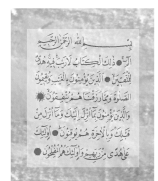 بِسْمِ اللَّهِ الرَّحْمَٰنِ الرَّحِيمِ
الٓمٓ ذَٰلِكَ الْكِتَابُ لَا رَيْبَ فِيهِ هُدًى
لِلْمُتَّقِينَ الَّذِينَ يُؤْمِنُونَ بِالْغَيْبِ وَيُقِيمُونَ
الصَّلَوٰةَ وَمِمَّا رَزَقْنَاهُمْ يُنْفِقُونَ
وَالَّذِينَ يُؤْمِنُونَ بِمَا أُنْزِلَ إِلَيْكَ وَمَا أُنْزِلَ مِنْ
قَبْلِكَ وَبِالْآخِرَةِ هُمْ يُوقِنُونَ أُولَٰئِكَ
عَلَىٰ هُدًى مِنْ رَبِّهِمْ وَأُولَٰئِكَ هُمُ الْمُفْلِحُونَ